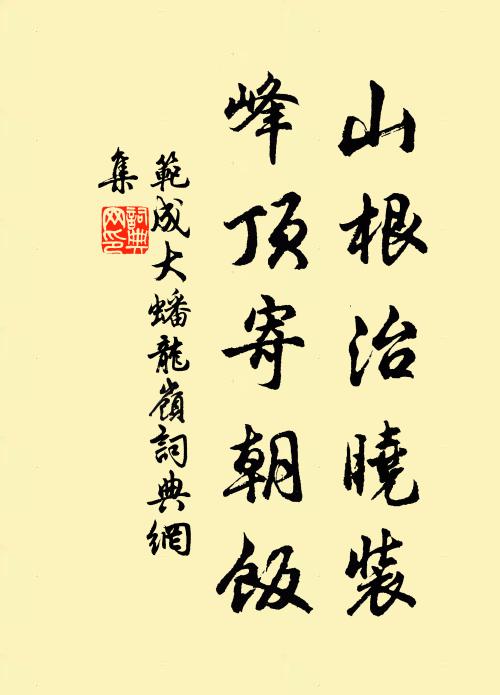 山根治曉装
峰顶寄朝飯
範成大蟠龍嶺詞典網
集
詞典网印